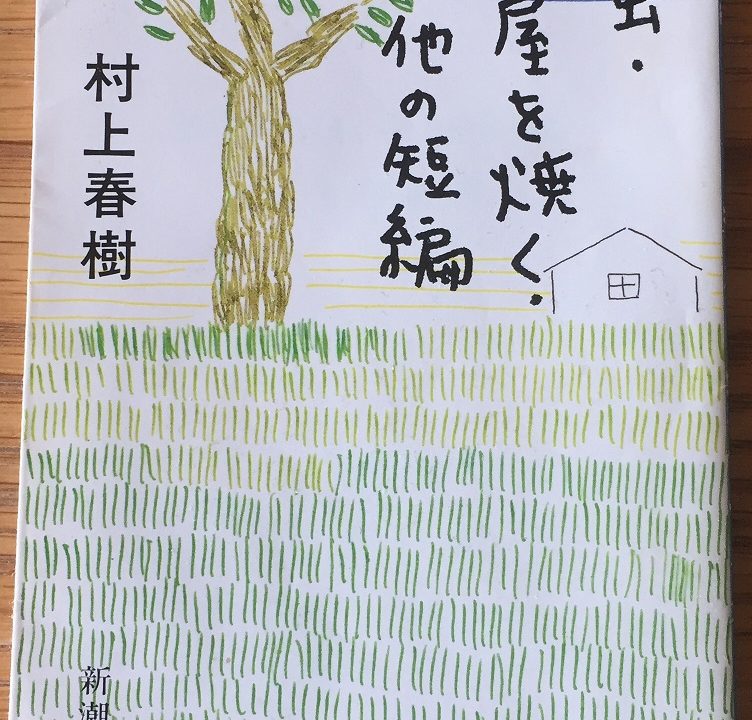 虫・
屋を焼く・
他の短編
村上春樹
新潮